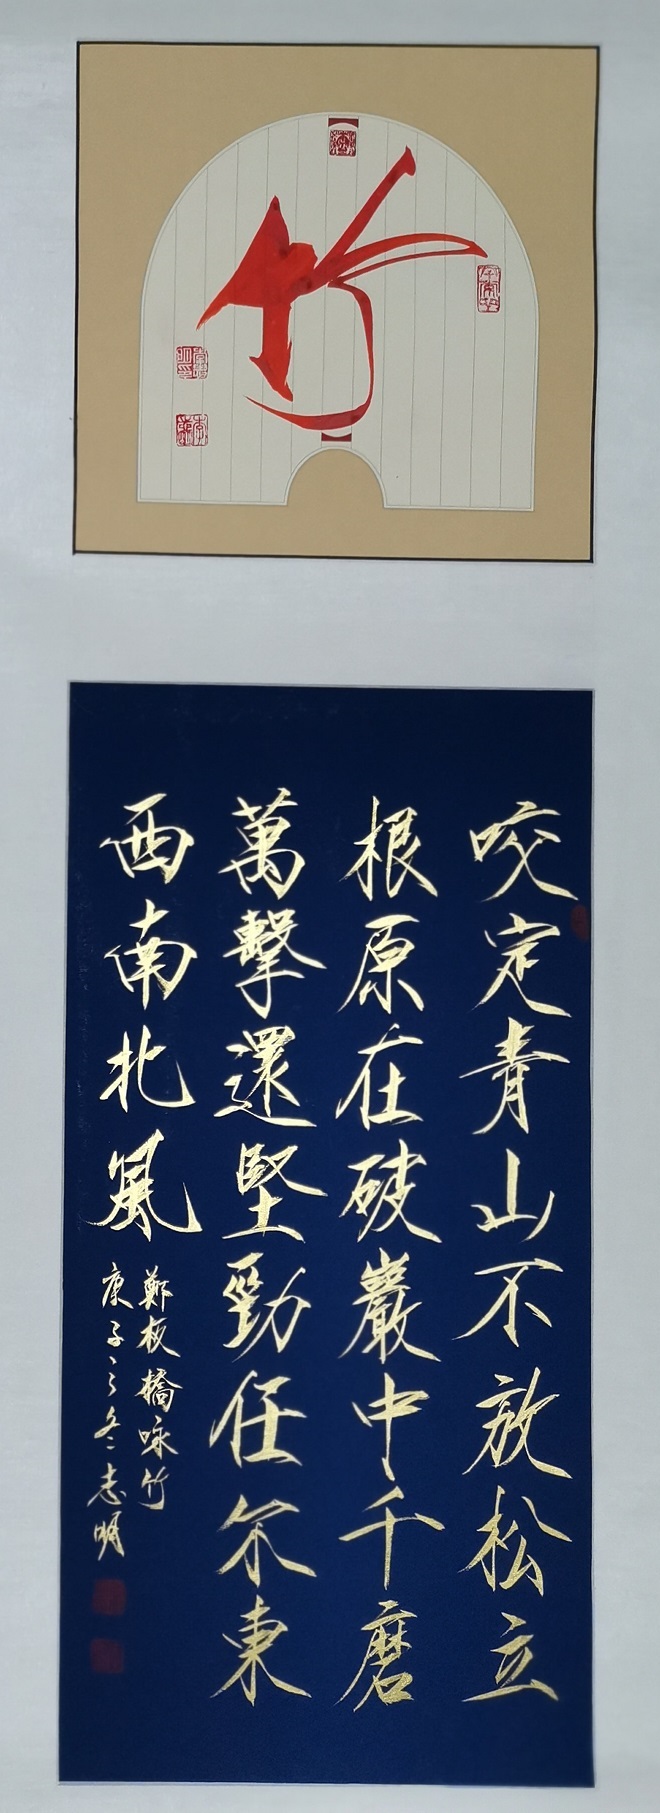 竹
咬定青山不放松立
根原在破巖中千磨
萬擊還堅勁任尒東
西南北風
鄭板橋咏竹
庚子之冬志明